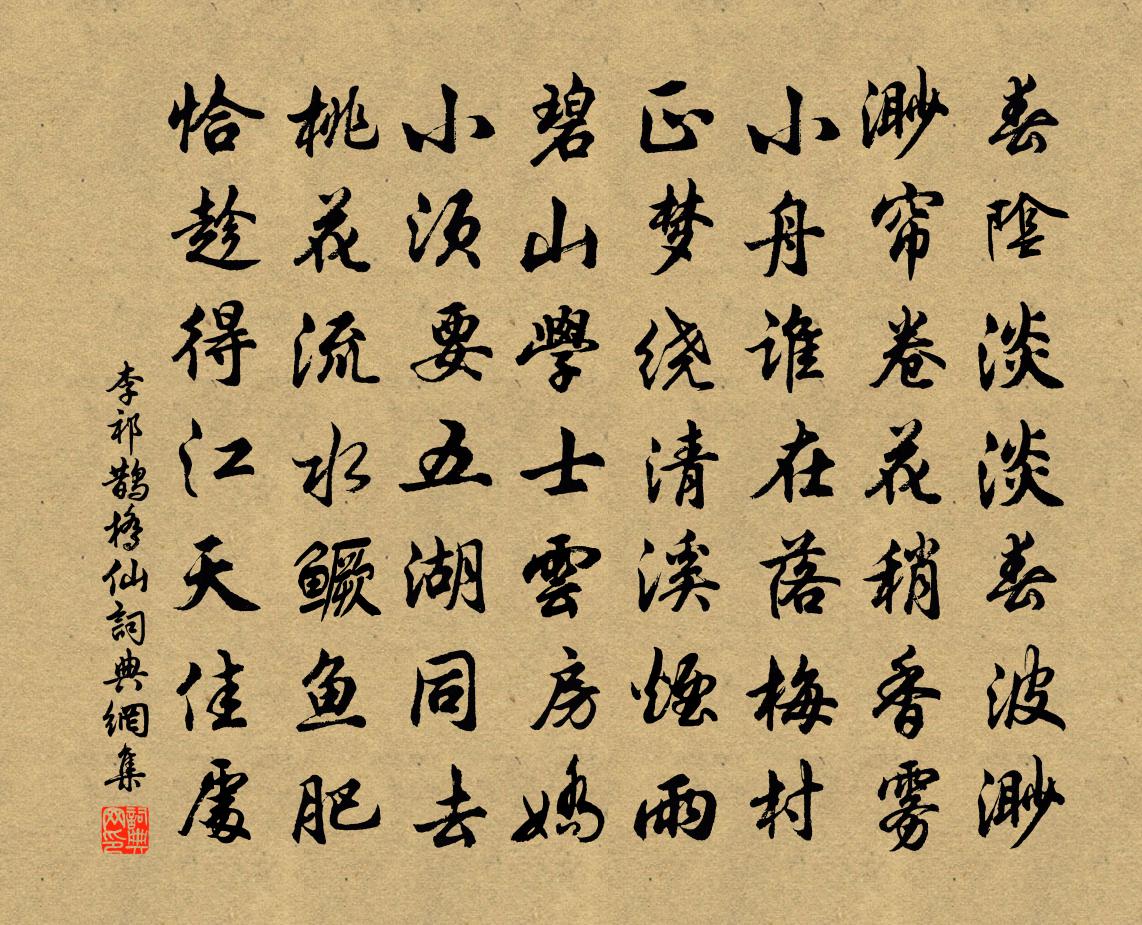 春陰淡淡春波渺
渺帘卷花稍香雾
小舟谁在落梅村
正梦绕清溪煙雨
碧山學士雲房嬌
小须要五湖同去
桃花流水鳜鱼肥
恰趁得江天佳處
李祁鹊橋仙詞典網集
詞典网印